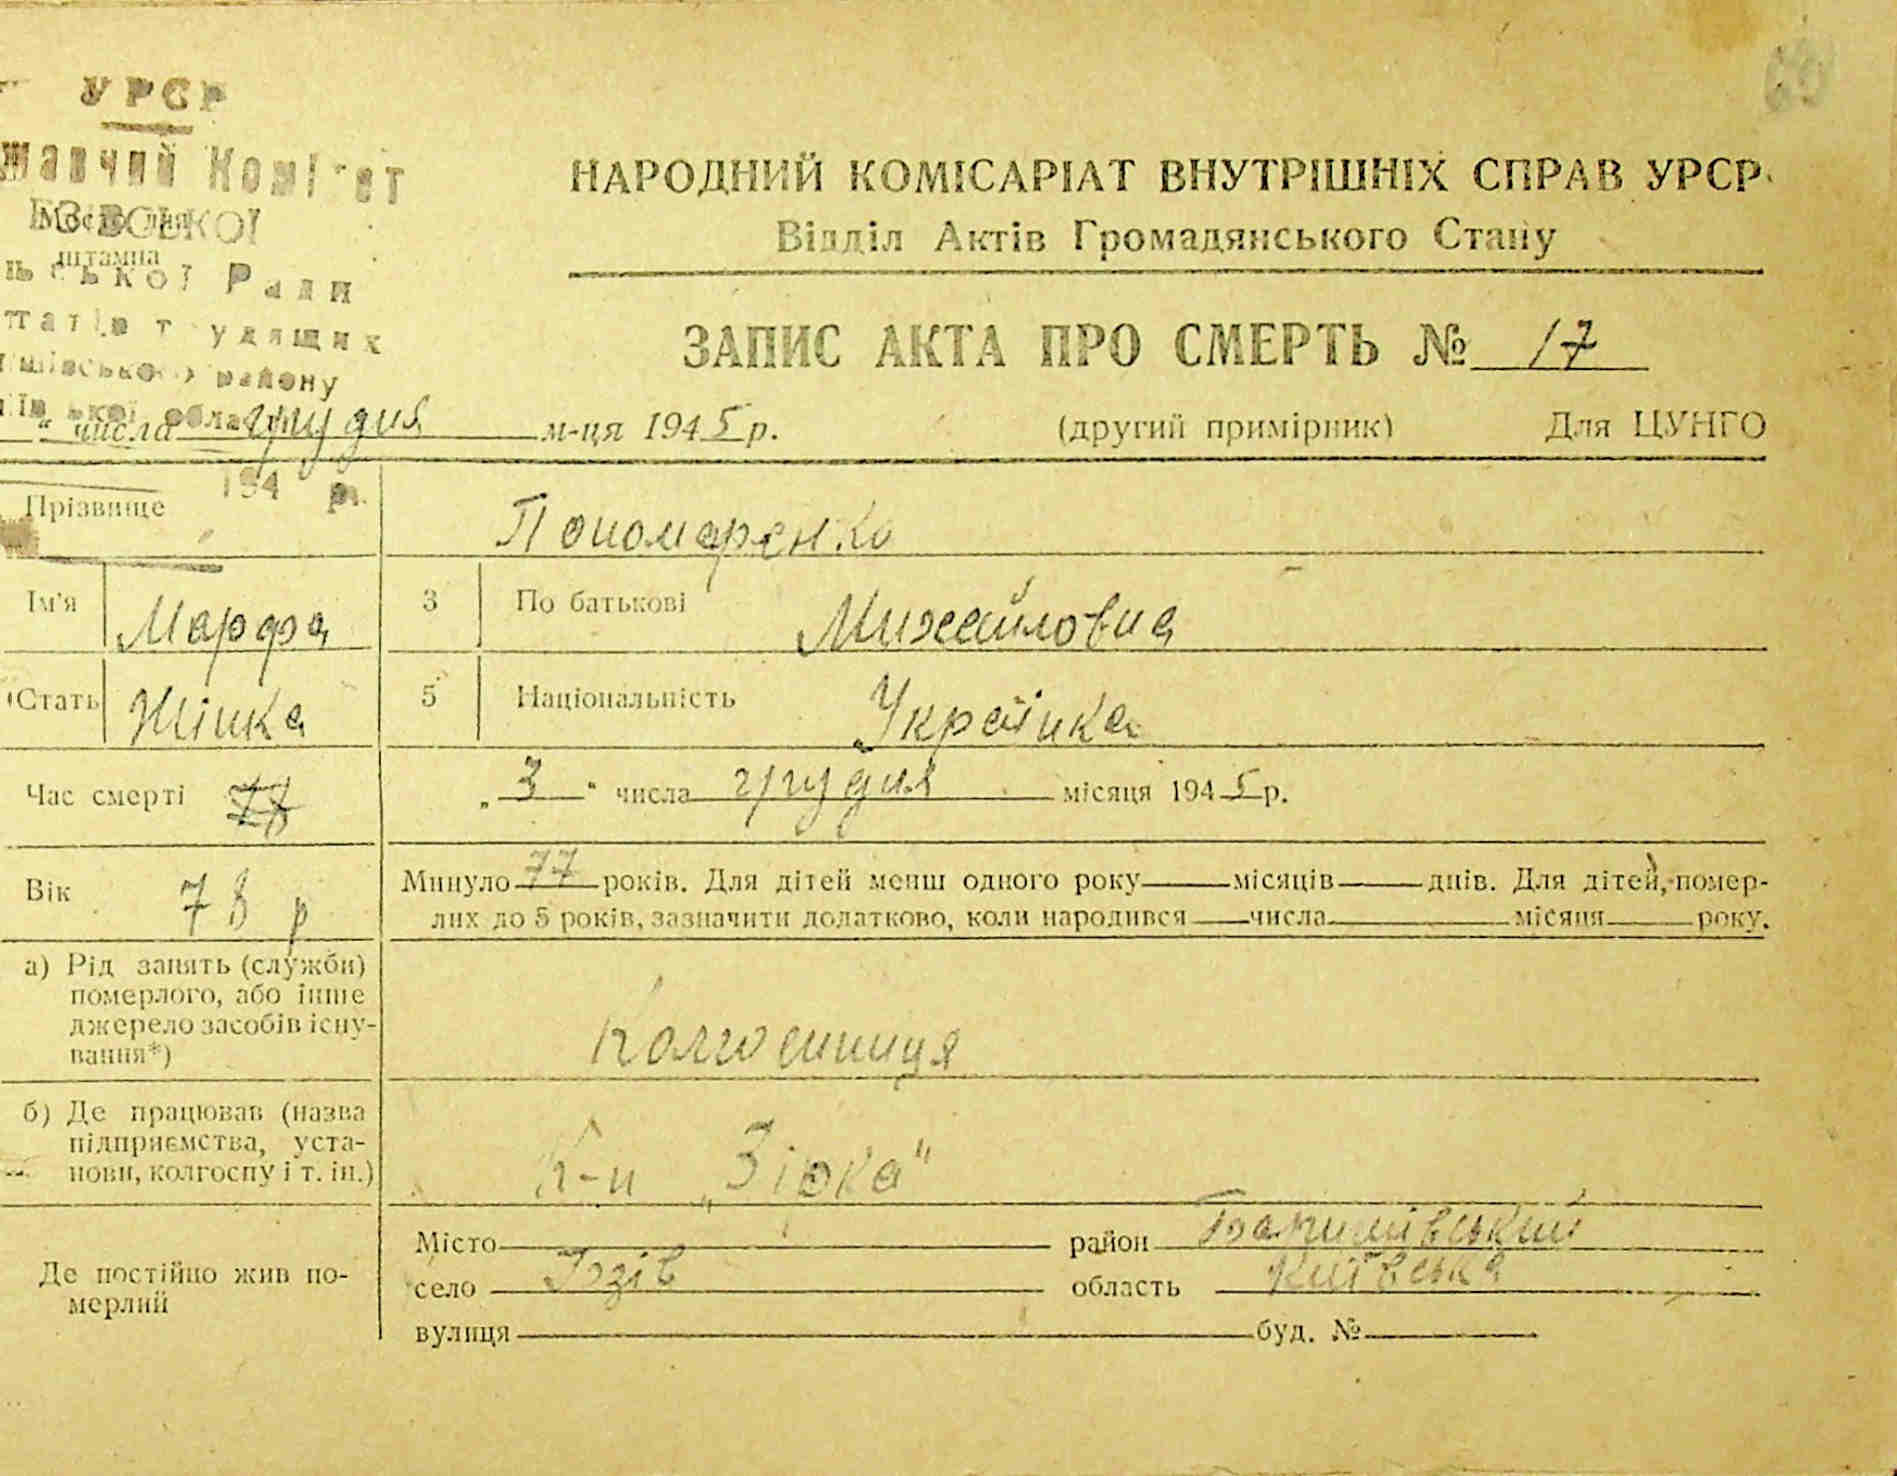 УРСР
Комітет
НАРОДНИЙ КОМІСАРІАТ ВНУТРІШНІХ СПРАВ УРСР
штампа
Відділ Актів Громадянського Стану
ської Ради
трудящих
району
ЗАПИС АКТА ПРО СМЕРТЬ № 17
" числа грудня м-ця 1945 р. (другий примірник) Для ЦУНГО
194 р.
Прізвище Пономаренко
Ім'я Марфа 3 По батькові Михайловна
Стать Жінка 5 Національність Українка
Час смерті „ 3 " числа грудня місяця 1945 р.
Вік 78 р Минуло 77 років. Для дітей менш одного року місяців днів. Для дітей, помер-
лих до 5 років, зазначити додатково, коли народився числа місяця року.
а) Рід занять (служби)
померлого, або інше
джерело засобів існу-
вання*)
Колгоспниця
б) Де працював (назва
підприємства, уста-
нови, колгоспу і т. ін.)
К-п „Зірка"
Де постійно жив по-
мерлий
Місто район Баришівський
село область Київська
вулиця буд. №